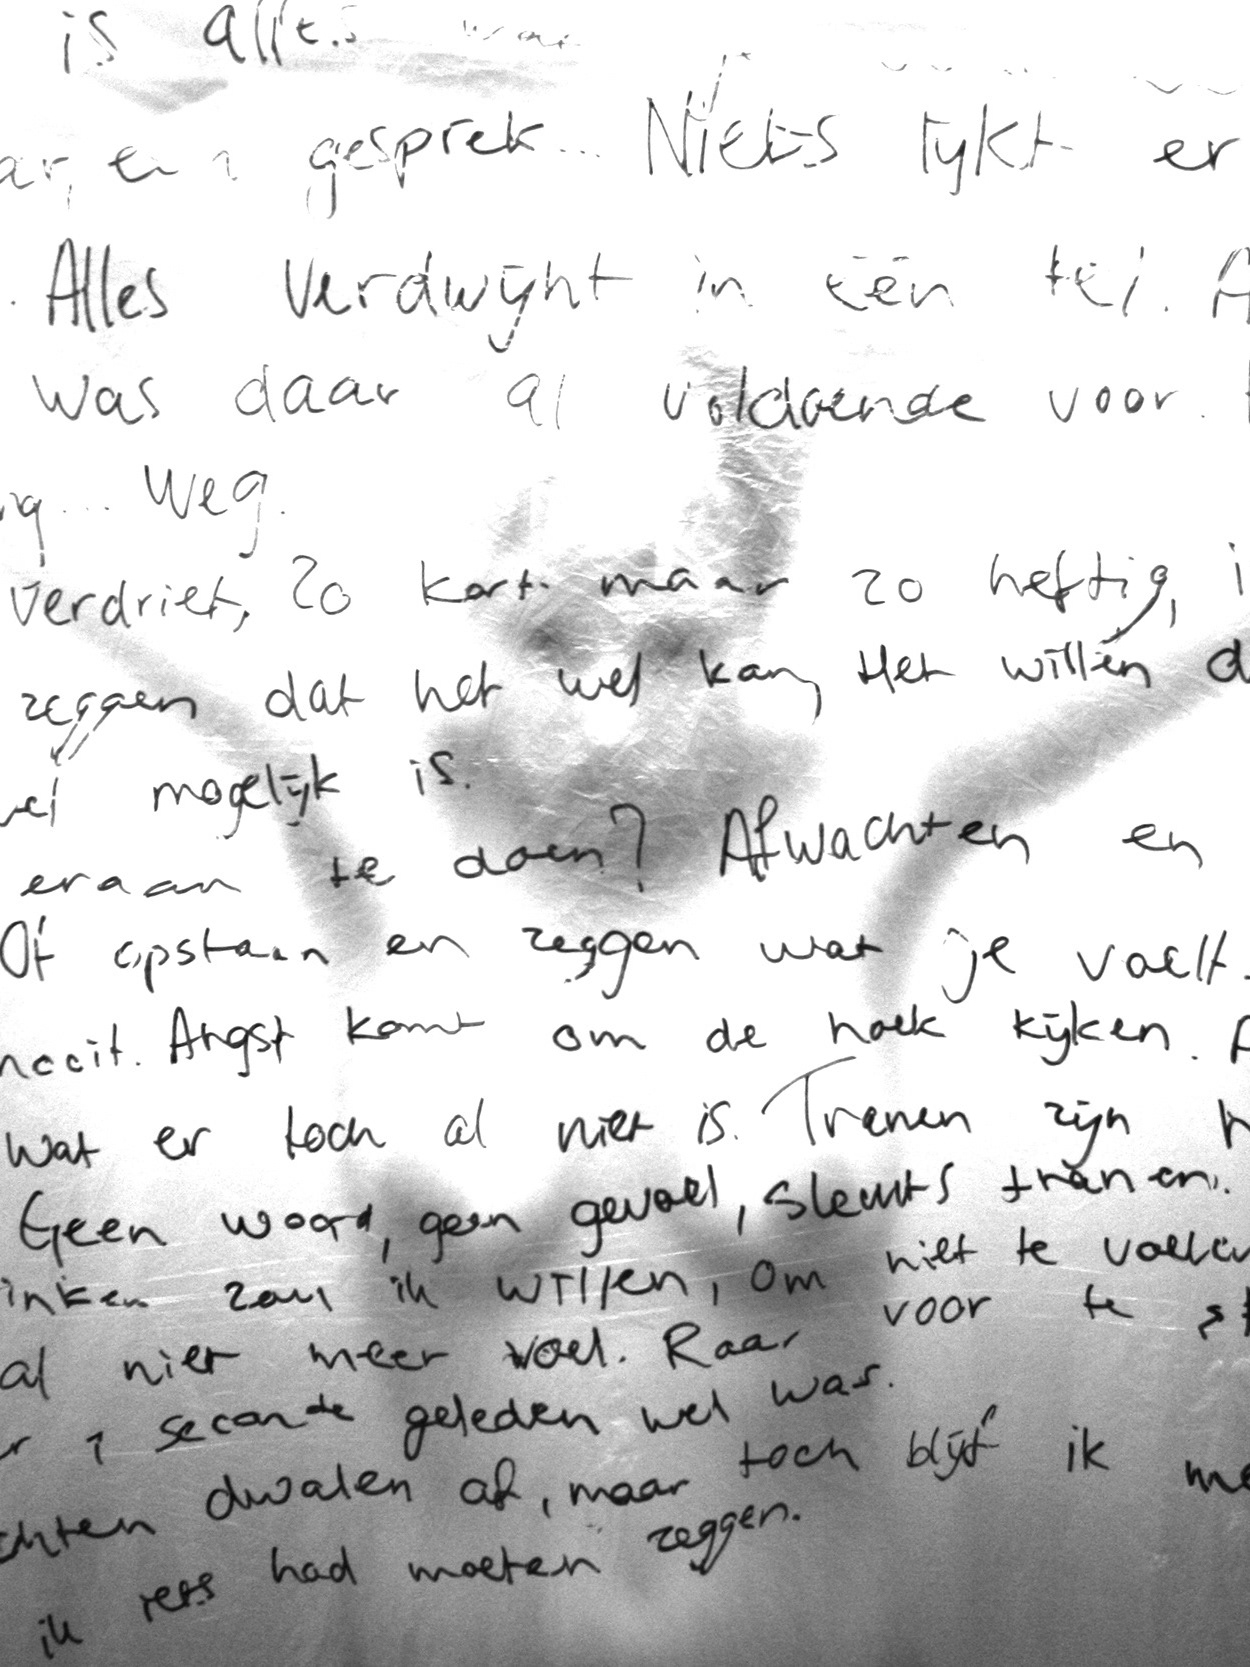 is alles
gesprek... Niets lijkt er
. Alles verdwijnt in één tel.
was daar al voldoende voor.
... Weg.
verdriet, zo kort maar zo heftig, i
zeggen dat het wel kan, Het willen d
mogelijk is.
eraan te doen? Afwachten en
Of opstaan en zeggen wat je voelt.
nooit. Angst komt om de hoek kijken. A
wat er toch al niet is. Tranen zijn h
Geen woord, geen gevoel, slechts tranen.
inken zou ik willen, om niet te voelen
al niet meer voel. Raar voor te st
r 1 seconde geleden wel was.
chten dwalen af, maar toch blijf ik me
ik iets had moeten zeggen.